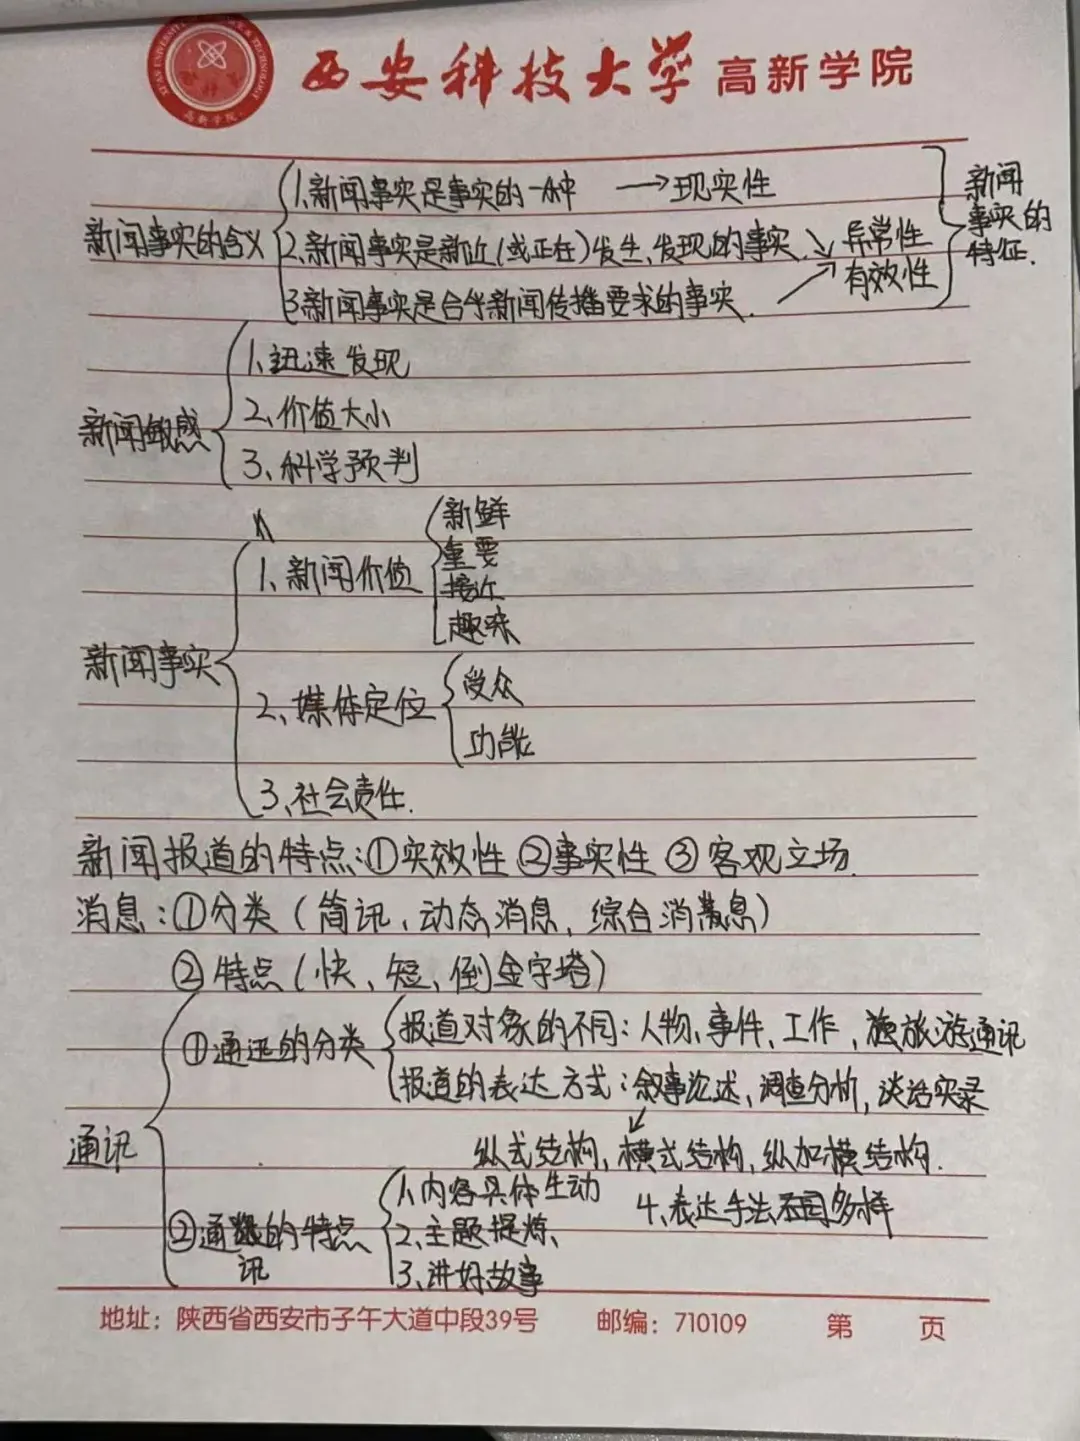 西安科技大学 高新学院
新闻事实的含义
1.新闻事实是事实的一种 → 现实性
2.新闻事实是新近(或正在)发生、发现的事实. ↘ 异常性
3.新闻事实是合乎新闻传播要求的事实. ↗ 有效性
新闻事实的特征.
新闻敏感
1、迅速发现
2、价值大小
3、科学预判
新闻事实
1、新闻价值
新鲜
重要
接近
趣味
2、媒体定位
受众
功能
3、社会责任.
新闻报道的特点:①实效性 ②事实性 ③客观立场.
消息:①分类(简讯、动态消息,综合消息)
②特点(快、短、倒金字塔)
通讯
①通讯的分类
报道对象的不同:人物、事件、工作,旅游通讯
报道的表达方式:叙事论述,调查分析,谈话实录
纵式结构,横式结构,纵加横结构.
②通讯的特点
1、内容具体生动
2、主题提炼、
3、讲好故事
4、表达手法不同多样
地址：陕西省西安市子午大道中段39号 邮编：710109 第 页